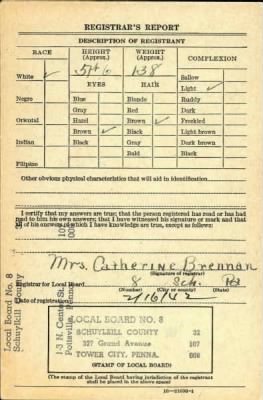 REGISTRAR'S REPORT
DESCRIPTION OF REGISTRANT
RACE HEIGHT (Approx.) WEIGHT (Approx.) COMPLEXION
5ft 6 138 Sallow
White ✓ EYES HAIR Light ✓
Negro Blue Blonde Ruddy
Gray Red Dark
Oriental Hazel Brown ✓ Freckled
Brown ✓ Black Light brown
Indian Black Gray Dark brown
Bald Black
Filipino
Other obvious physical characteristics that will aid in identification
I certify that my answers are true; that the person registered has read or has had
read to him his own answers; that I have witnessed his signature or mark and that
all of his answers of which I have knowledge are true, except as follows:
Mrs. Catherine Brennan
(Signature of registrar)
Registrar for Local Board 8 Sch. Pa
(Number) (City or county) (State)
Date of registration 2/16/42
Local Board No. 8
Schuylkill County
1-3 N. Centre St.
Pottsville, Penna.
LOCAL BOARD NO. 8
SCHUYLKILL COUNTY 32
327 Grand Avenue 107
TOWER CITY, PENNA. 008
(STAMP OF LOCAL BOARD)
(The stamp of the Local Board having jurisdiction of the registrant
shall be placed in the above space)